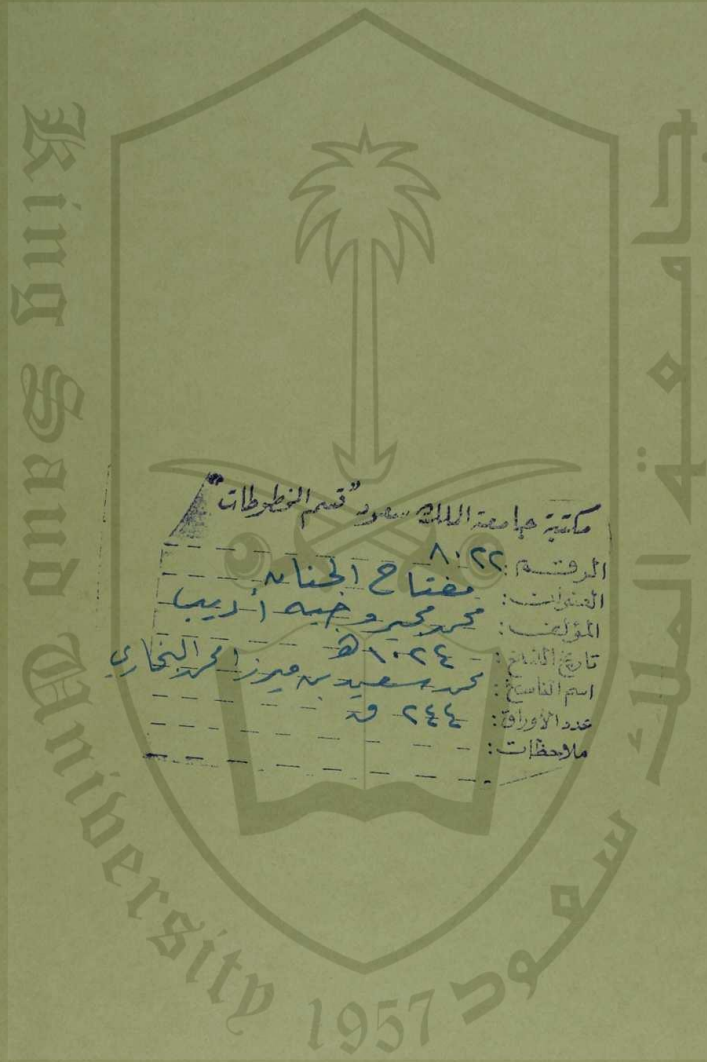 King Saud University 1957
جامعة الملك سعود
مكتبة جامعة الملك سعود "قسم المخطوطات"
الرقم: ٨٠٢٢
العنوان: مفتاح الجنان
المؤلف: محمد مجير وجيه أديب
تاريخ النسخ: ١٠٢٤ هـ
اسم الناسخ: محمد سعيد بن ميرزا محمد البخاري
عدد الأوراق: ٢٤٤ ق
ملاحظات: